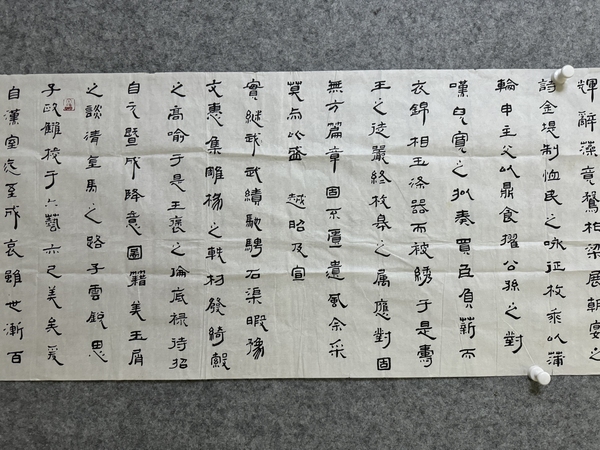 輝辭藻竟騖柏梁展朝宴之
詩金堤制恤民之咏征枚乘以蒲
輪申主父以鼎食擢公孫之對
嘆兒寬之拟奏買臣負薪而
衣錦相如滌器而被綉于是壽
王之徒嚴終枚皋之属應對固
無方篇章固不匱遺風余采
莫與比盛 越昭及宣
實継武武績馳騁石渠暇豫
文惠集雕椽之軼材發綺縠
之高喻于是王褒之倫底禄待招
自元暨成降意圖籍美玉屑
之談清金馬之路子雲鋭思
子政雠校于六藝亦已美矣爰
自漢室迄至成哀雖世漸百